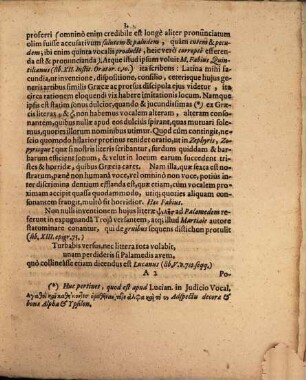 3.
proferri (omninò enim credibile est longè aliter pronunciatum
olim fuisse accusativum salutem & paludem, quàm cutem & pecu-
dem, ibi enim quinta vocalis productè, heic verò correptè efferen-
da est & proferenda), Atque istud ipsum voluit M. Fabius Quin-
tilianus (lib. XII. instit. Orator. c. 10.) ita scribens: Latina mihi fa-
cundia, ut inventione, dispositione, consilio, ceterisque hujus ge-
neris artibus similis Græcæ ac prorsus discipula ejus videtur, ita
circa rationem eloquendi vix habere imitationis locum. Namque
ipsis est statim sonus dulcior, quando & jucundissimas (*) ex Græ-
cis literas non habemus vocalem alteram, alteram conso-
nantem, quibus nullæ apud eos dulciùs spirant, quas mutuari sole-
mus, quoties illorum nominibus utimur. Quod cùm contingit, ne-
scio quomodo hilarior protinus renidet oratio, ut in Zephyris, Zo-
pyrisque; quæ si nostris literis scribantur, surdum quiddam & bar-
barum efficient sonum, & velut in locum earum succedent tri-
stes & horridæ, quibus Græcia caret. Nam & illa, quæ sexta est no-
stratum, penè non humanâ voce, vel omnino non voce, potiùs in-
ter discrimina dentium efflanda est, quæ etiam, cùm vocalem pro-
ximam accipit quassa quodammodo, utique quoties aliquam con-
sonantem frangit, multò fit horridior. Hæc Fabius.
Non nulli inventionem hujus literæ ad Palamedem re-
ferunt in expugnandâ Trojâ versantem, atq; illud Martiale autore
statuminare conantur, qui de gruibus sequens distichon protulit
(lib. XIII. epigr. 75.)
Turbabis versus, nec littera tota volabit,
unam perdideris si Palamedis avem,
quò collineâsse etiam dicendus est Lucanus (lib. V. v. 712. seqq.).
A 2 Po-
(*) Huc pertinet, quod est apud Lucian. in Judicio Vocal.
Adspectu decora &
bona Alpha & Ypsilon.